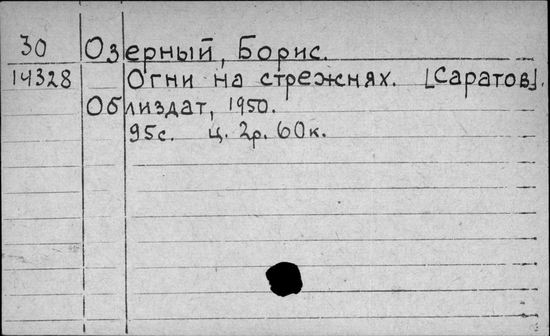 30 Озерный, Борис.
14328 Огни на стрежнях. [Саратов].
Облиздат, 1950.
95с. ц. 2р. 60к.